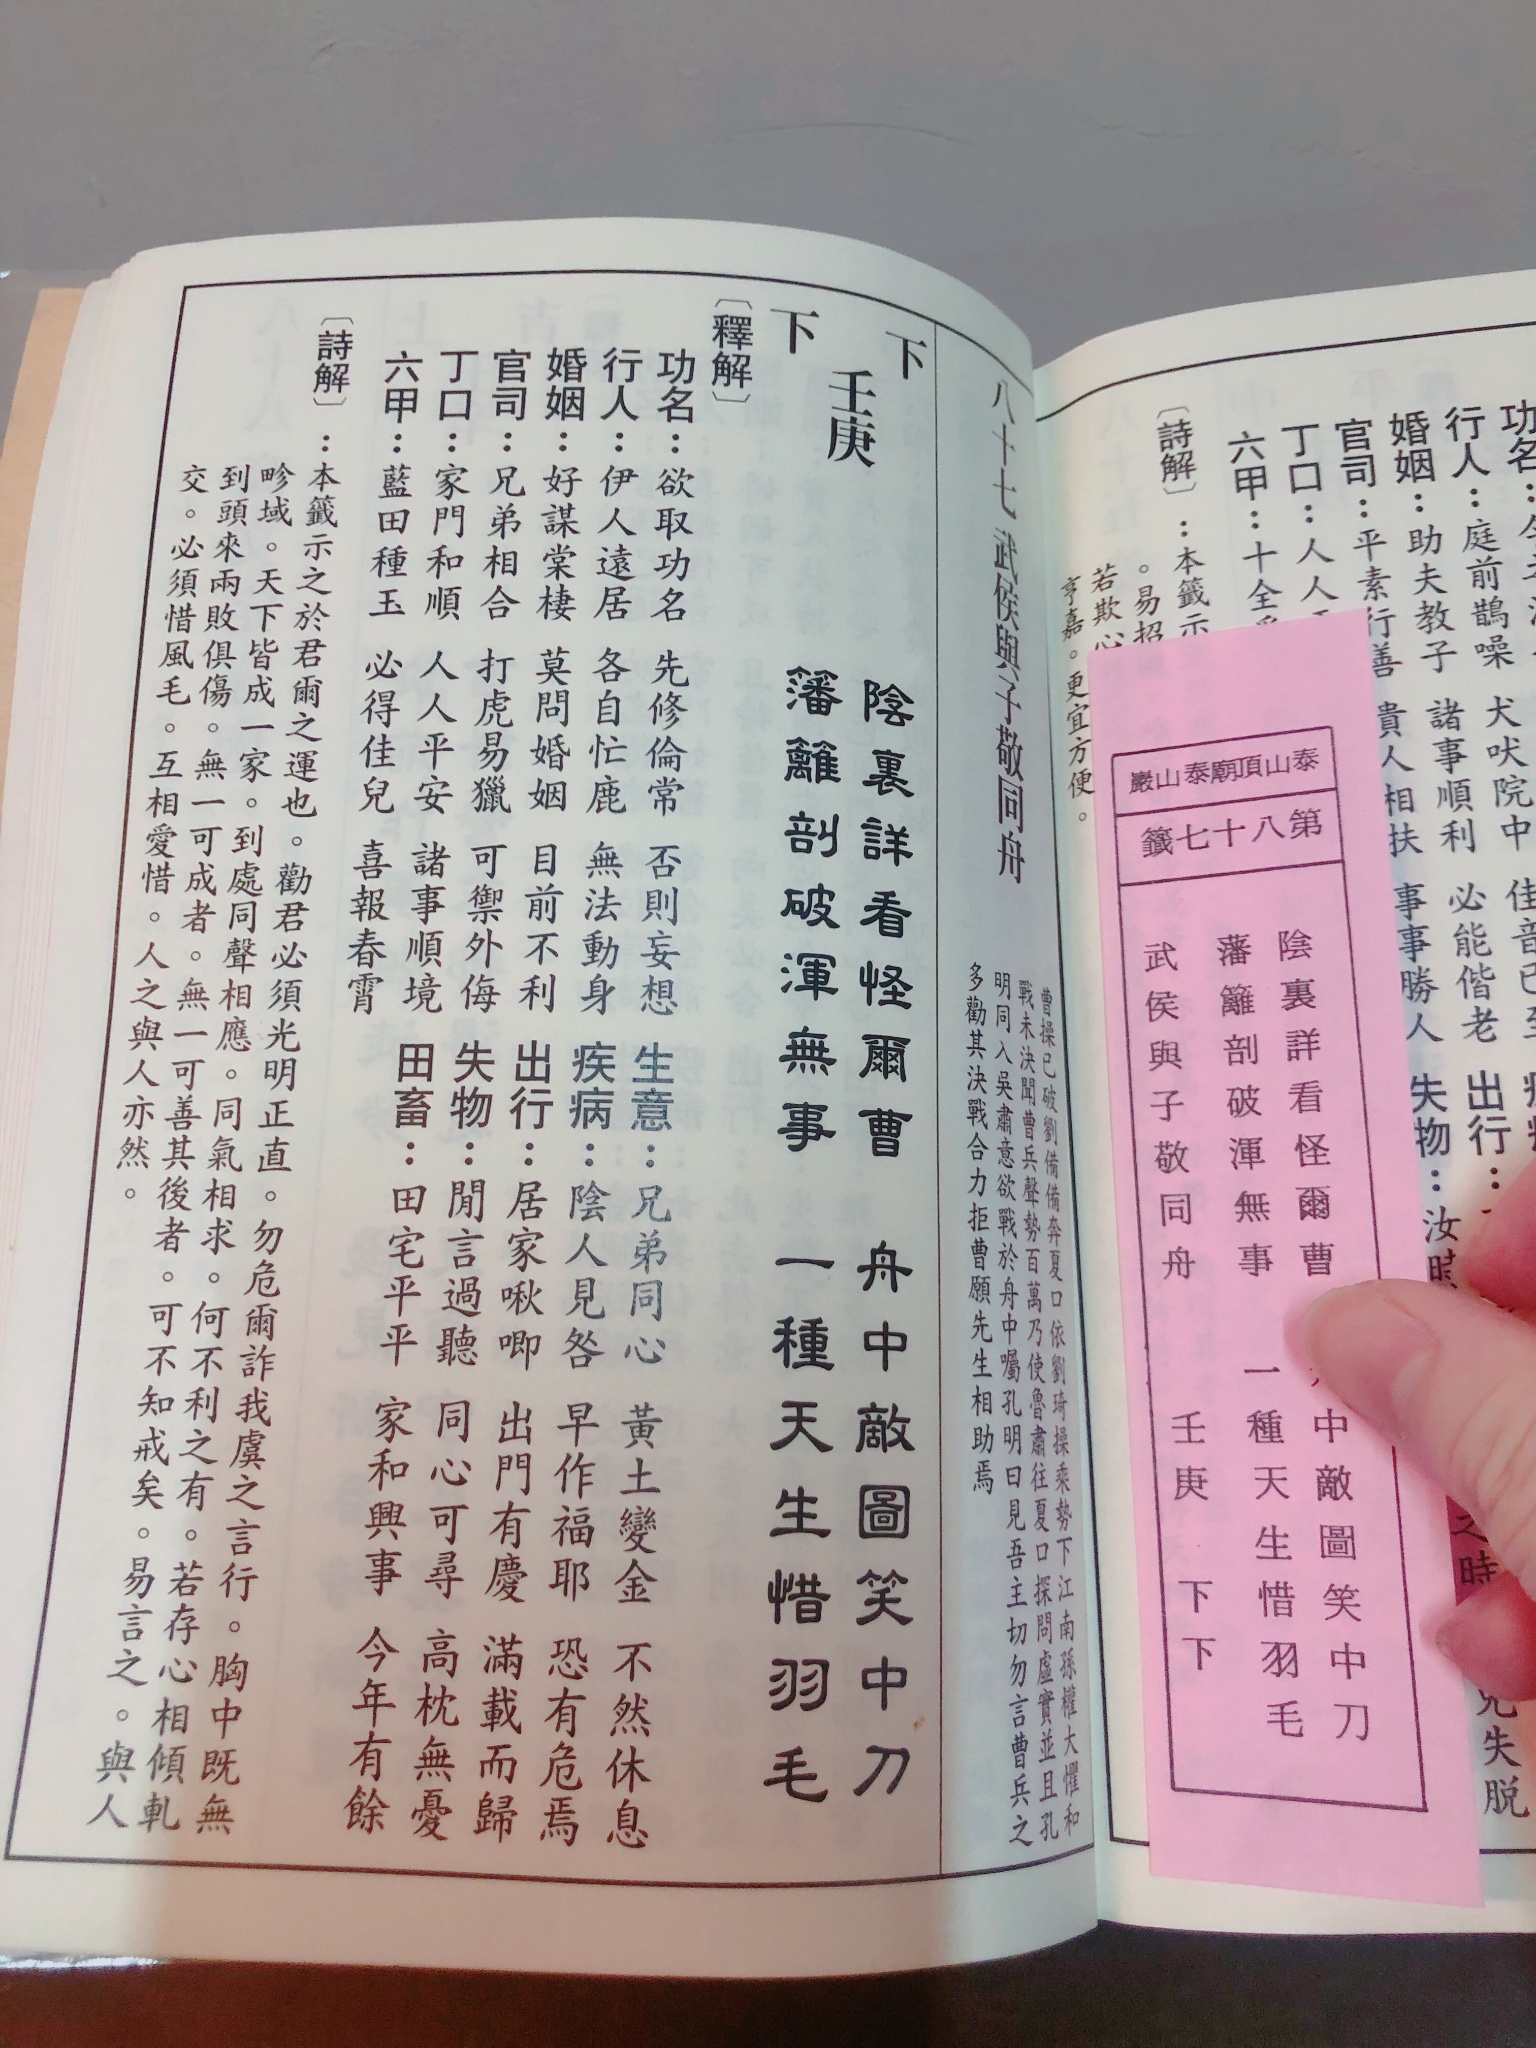 八十七 武侯與子敬同舟
曹操已破劉備備奔夏口依劉琦操乘勢下江南孫權大懼和
戰未決聞曹兵聲勢百萬乃使魯肅往夏口探問虛實並且孔
明同入吳肅意欲戰於舟中囑孔明曰見吾主切勿言曹兵之
多勸其決戰合力拒曹願先生相助焉
下 陰裏詳看怪爾曹 舟中敵圖笑中刀
壬庚
下 籓籬剖破渾無事 一種天生惜羽毛
〔釋解〕
功名：欲取功名 先修倫常 否則妄想
行人：伊人遠居 各自忙鹿 無法動身
婚姻：好謀棠棲 莫問婚姻 目前不利
官司：兄弟相合 打虎易獵 可禦外侮
丁口：家門和順 人人平安 諸事順境
六甲：藍田種玉 必得佳兒 喜報春霄
生意：兄弟同心 黃土變金 不然休息
疾病：陰人見咎 早作福耶 恐有危焉
出行：居家啾唧 出門有慶 滿載而歸
失物：閒言過聽 同心可尋 高枕無憂
田畜：田宅平平 家和興事 今年有餘
〔詩解〕：本籤示之於君爾之運也。勸君必須光明正直。勿危爾詐我虞之言行。胸中既無
畛域。天下皆成一家。到處同聲相應。同氣相求。何不利之有。若存心相傾軋
到頭來兩敗俱傷。無一可成者。無一可善其後者。可不知戒矣。易言之。與人
交。必須惜風毛。互相愛惜。人之與人亦然。
泰山頂廟泰山巖
第八十七籤
陰裏詳看怪爾曹 中敵圖笑中刀
藩籬剖破渾無事 一種天生惜羽毛
武侯與子敬同舟 壬庚 下下
功名：
行人：庭前鵲噪 犬吠院中
婚姻：助夫教子 諸事順利 必能偕老
官司：平素行善 貴人相扶 事事勝人
丁口：人人
六甲：十全
出行：
失物：汝
〔詩解〕：本籤示
。易招
若欺心
亨嘉。更宜方便。
之時
失脱